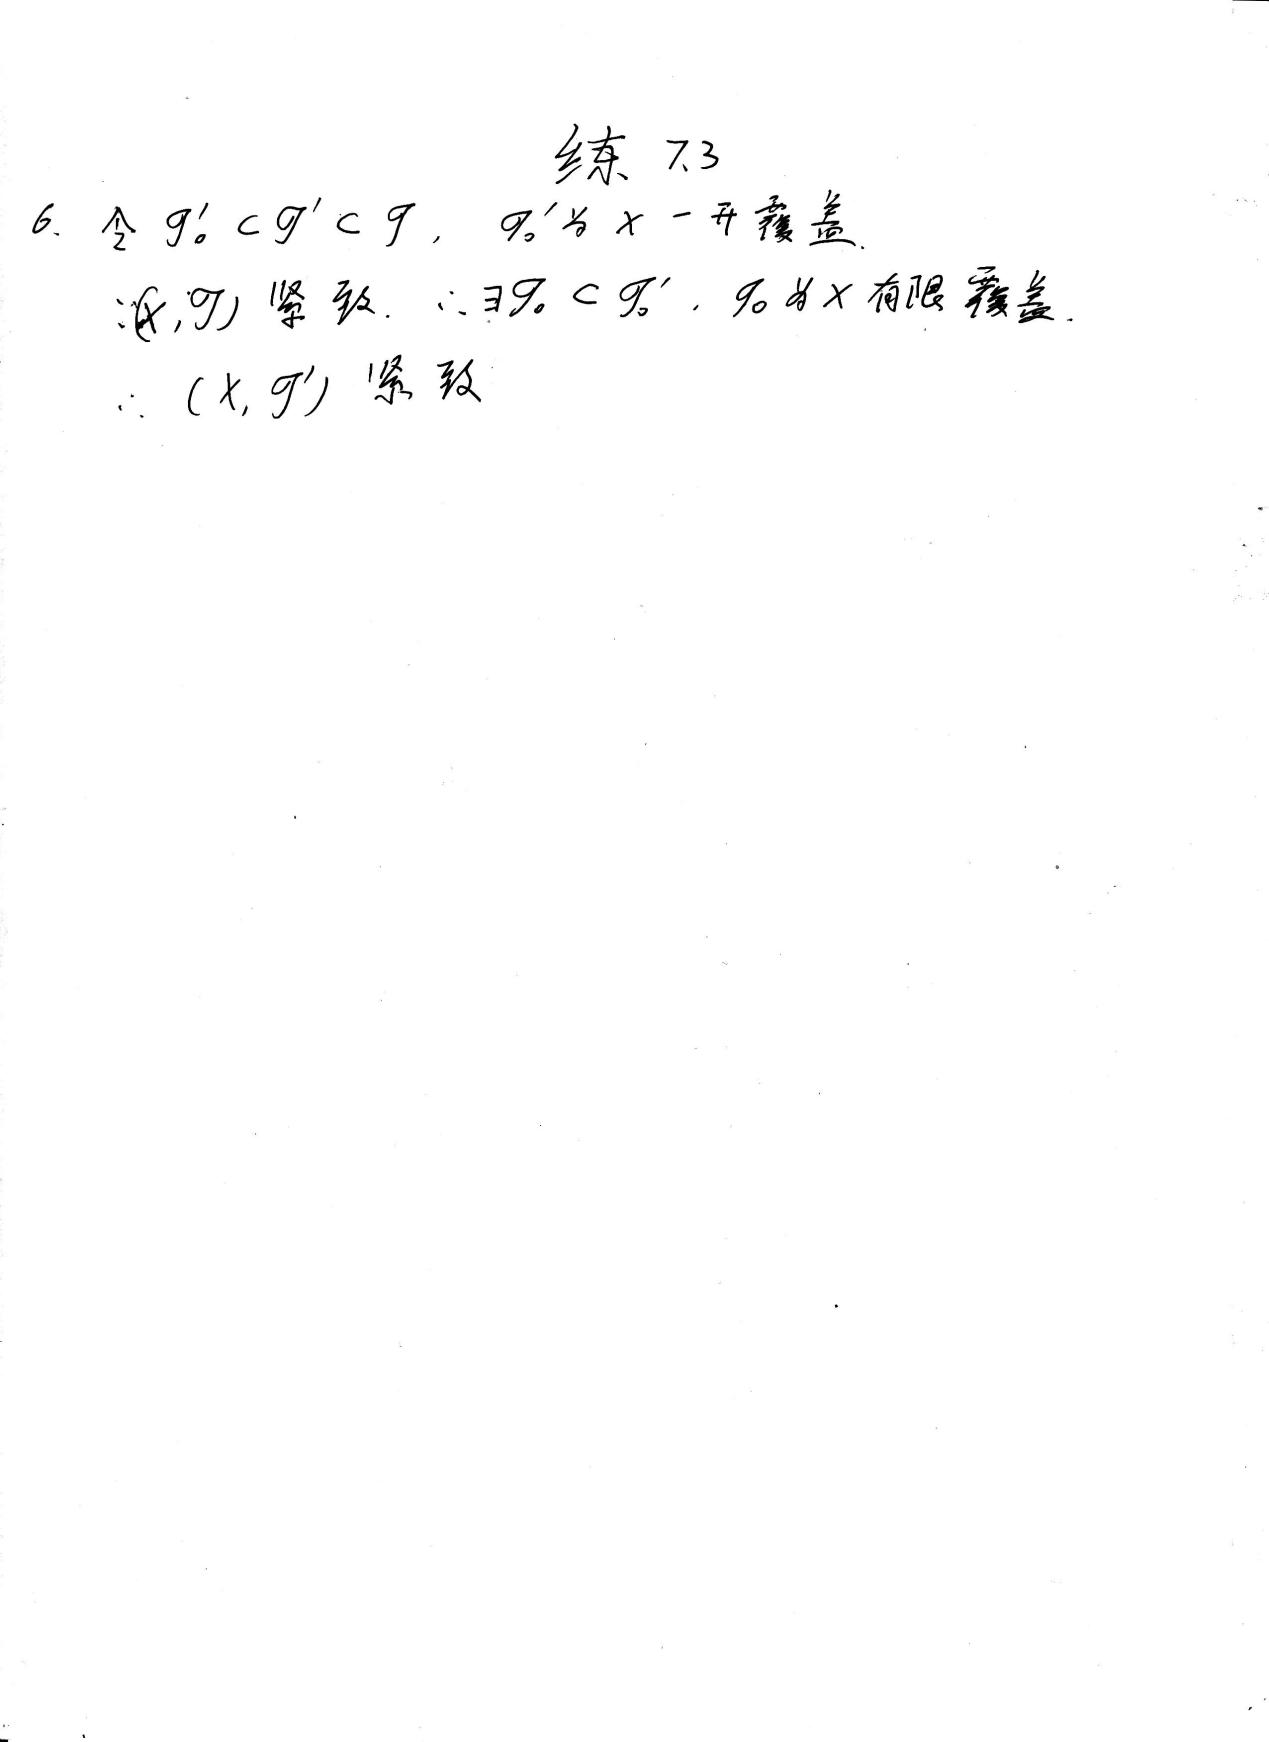 练 7.3
6. 令 𝒯₀′ ⊂ 𝒯′ ⊂ 𝒯, 𝒯₀′为 X 一开覆盖.
∵(X,𝒯) 紧致. ∴∃𝒯₀ ⊂ 𝒯₀′, 𝒯₀为X有限覆盖.
∴ (X,𝒯′) 紧致